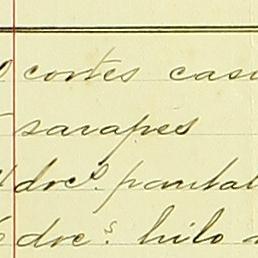 cortes casi
sarapes
docs. pantal
docs. hilo